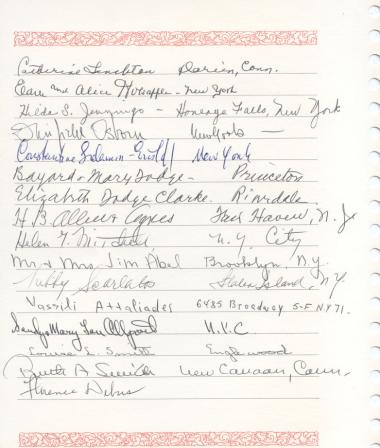 Catherine Darien, Conn.
Earl and Alice - New York
Hilda S. Jennings - Honeoye Falls, New York
Osborn New York —
Constantine New York
Bayard & Mary Dodge - Princeton
Elizabeth Dodge Clarke. Riverdale
H B Allen & Agnes Fair Haven, N. J.
Helen N. Y. City
Mr & Mrs Jim Abel Brooklyn, N.Y.
Scarlatos Staten Island, N.Y.
Vassili Attaliades 6485 Broadway 5-F NY 71.
Mary Lou Allgood N.Y.C.
Louise E. Smith Englewood
Ruth A New Canaan, Conn.
Florence